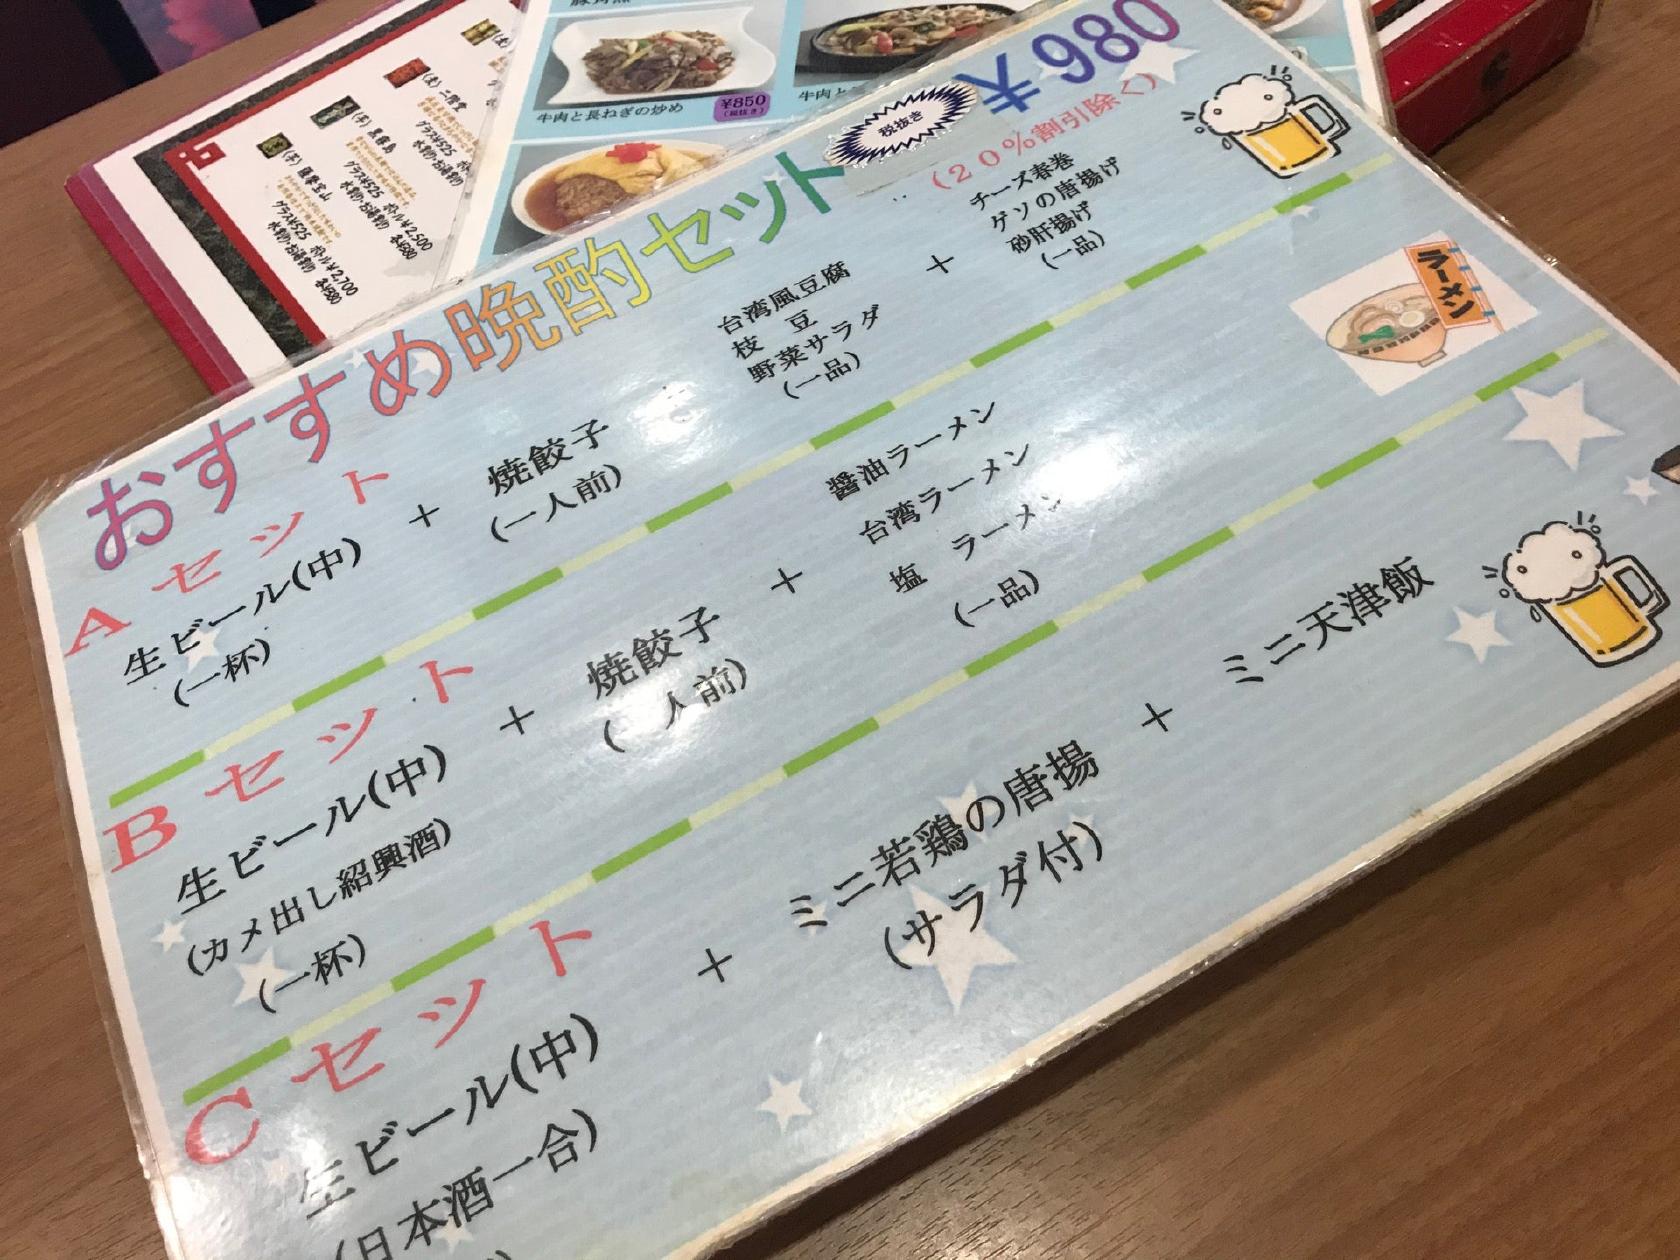 おすすめ晩酌セット
税抜き
¥980
(20%割引除く)
Aセット
生ビール(中)
(一杯)
+
焼餃子
(一人前)
台湾風豆腐
枝 豆
野菜サラダ
(一品)
+
チーズ春巻
ゲソの唐揚げ
砂肝揚げ
(一品)
Bセット
生ビール(中)
(カメ出し紹興酒)
(一杯)
+
焼餃子
( 人前)
+
醤油ラーメン
台湾ラーメン
塩 ラーメン
(一品)
ラーメン
Cセット
生ビール(中)
(日本酒一合)
+
ミニ若鶏の唐揚
(サラダ付)
+
ミニ天津飯
牛肉と長ねぎの炒め
¥850
(税抜き)
牛肉と
(麦) 二階堂
(芋) 黒霧島
グラス¥525 ボトル¥2,500
水割り・お湯割り 各¥580
(芋) 薩摩宝山
グラス¥525 ボトル¥2,700
水割り・お湯割り 各¥580